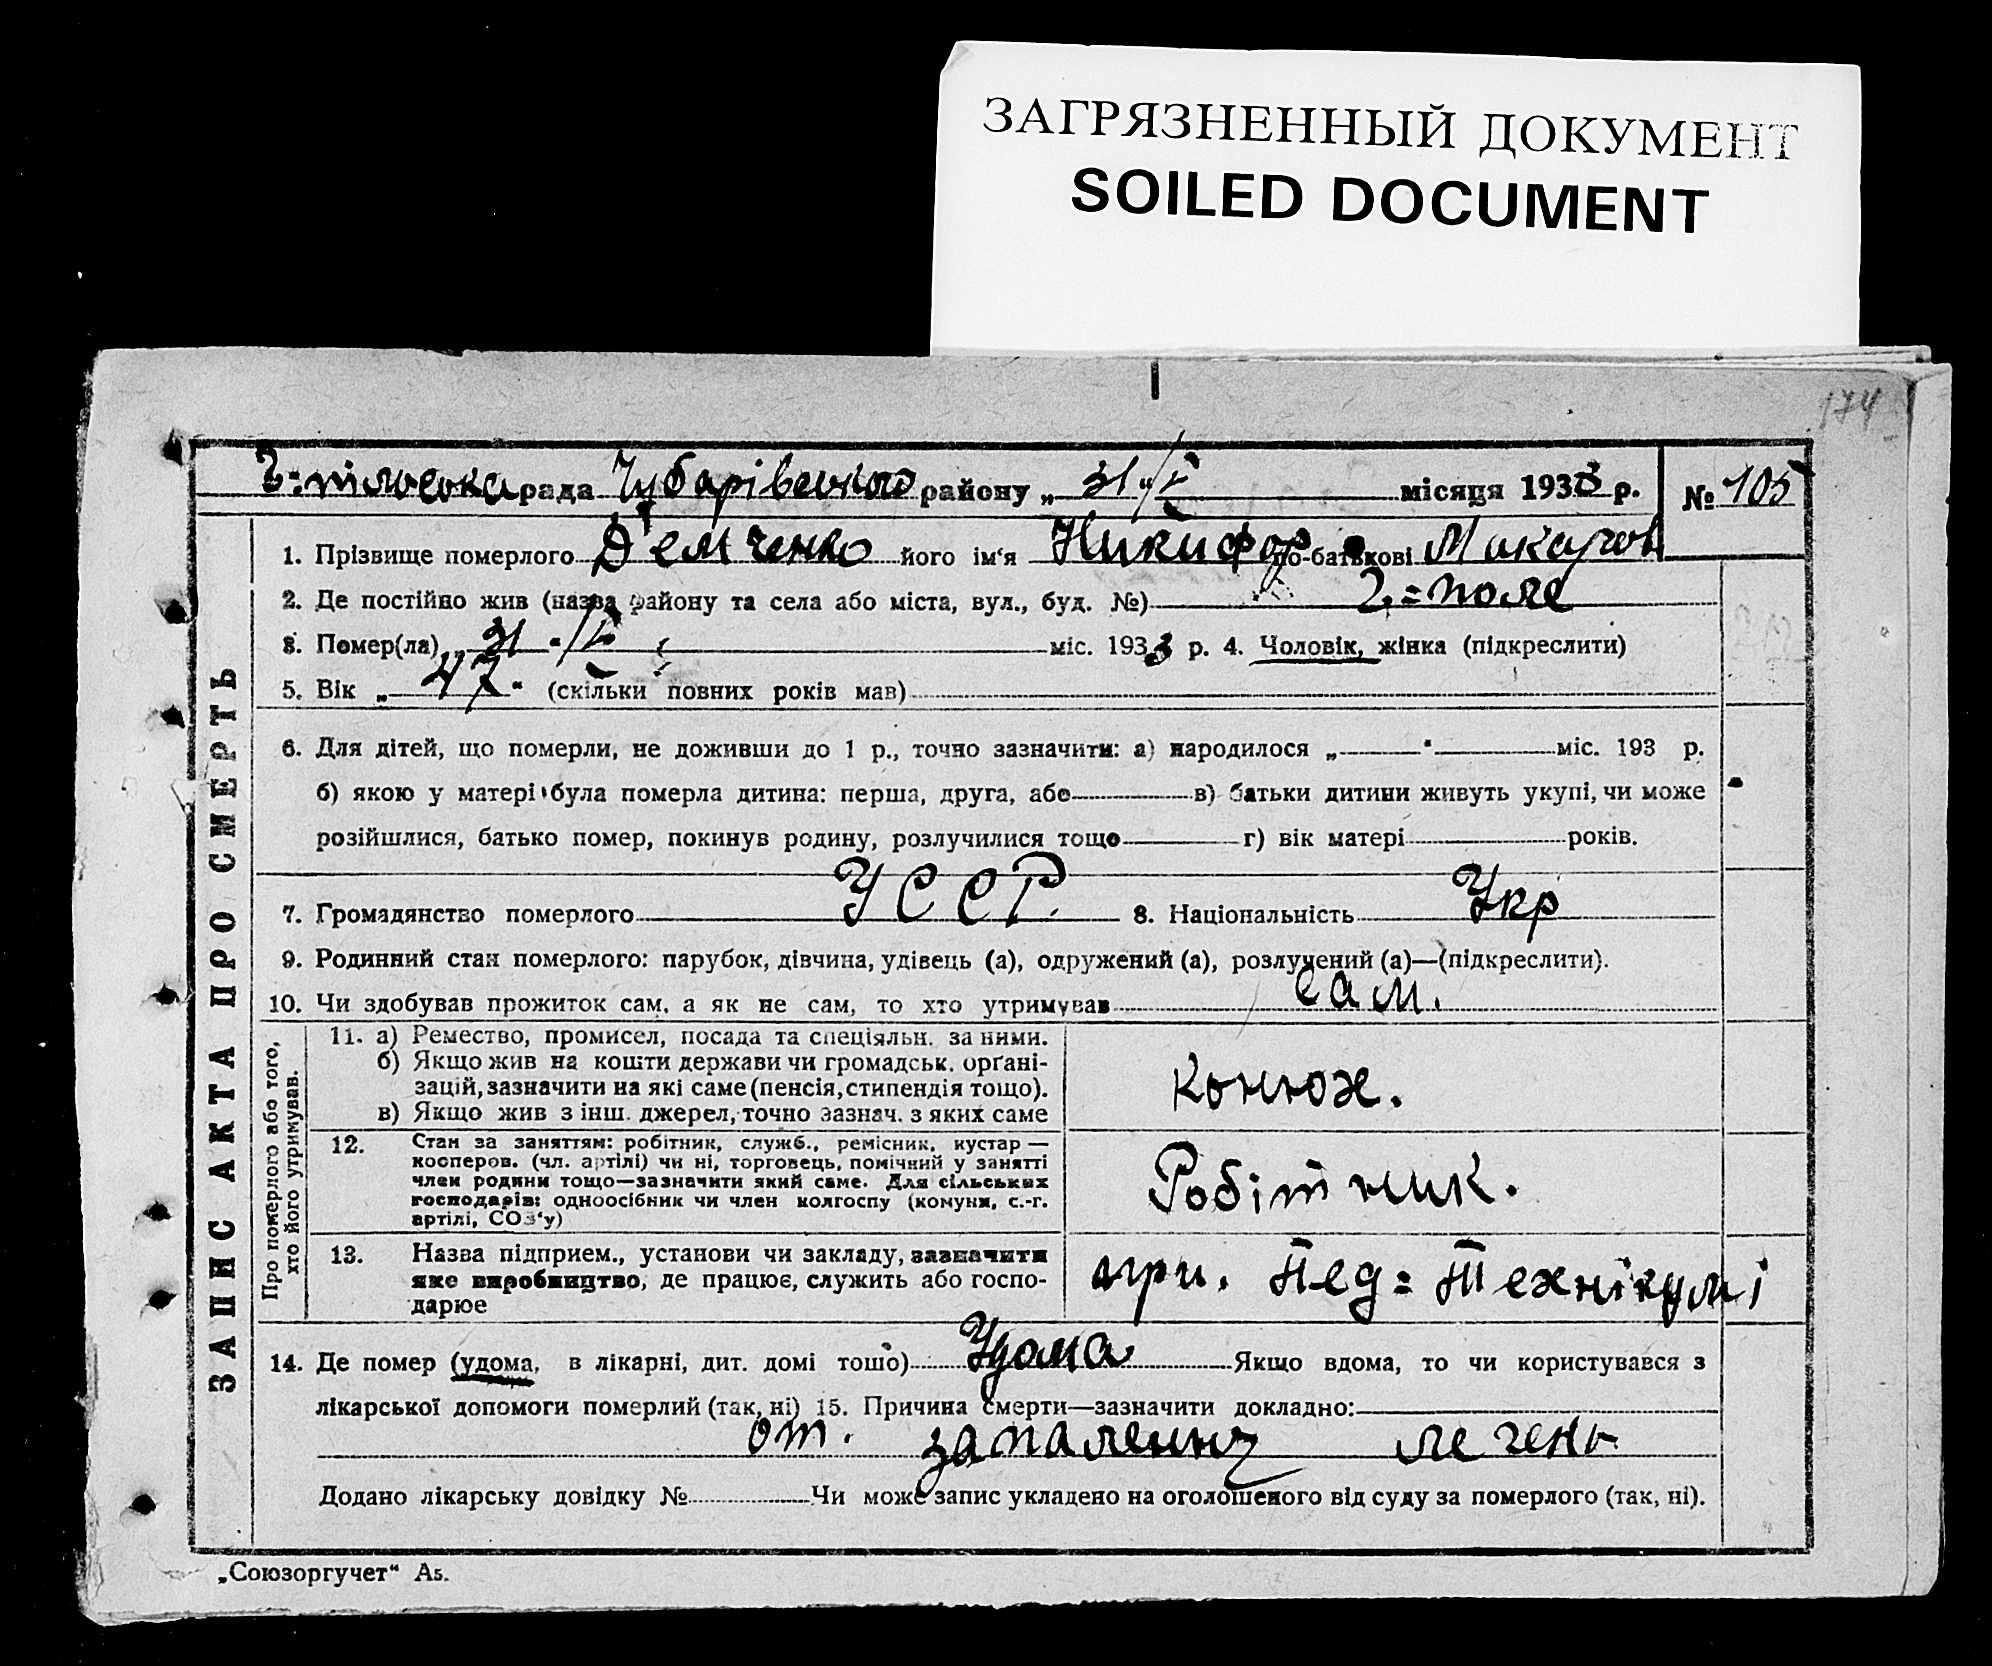 ЗАГРЯЗНЕННЫЙ ДОКУМЕНТ
SOILED DOCUMENT
174
рада Чубарівського району „31“ V місяця 1933 р. № 105
1. Прізвище померлого Демченко його ім‘я Никифор по-батькові Макаров
2. Де постійно жив (назва району та села або міста, вул., буд. №) Г.=поле
3. Помер(ла) „31“ V міс. 1933 р. 4. Чоловік, жінка (підкреслити)
5. Вік „47“ (скільки повних років мав)
6. Для дітей, що померли, не доживши до 1 р., точно зазначити: а) народилося „ “ міс. 193 р.
б) якою у матері була померла дитина: перша, друга, або в) батьки дитини живуть укупі, чи може
розійшлися, батько помер, покинув родину, розлучилися тощо г) вік матері років.
7. Громадянство померлого УССР. 8. Національність Укр
9. Родинний стан померлого: парубок, дівчина, удівець (а), одружений (а), розлучений (а)—(підкреслити).
10. Чи здобував прожиток сам, а як не сам, то хто утримував сам.
Про померлого або того,
хто його утримував.
11. а) Ремество, промисел, посада та спеціяльн. за ними.
б) Якщо жив на кошти держави чи громадськ. орґані-
зацій, зазначити на які саме (пенсія, стипендія тощо).
в) Якщо жив з інш. джерел, точно зазнач. з яких саме
Конюх.
12. Стан за заняттям: робітник, служб., ремісник, кустар —
косперов. (чл. артілі) чи ні, торговець, помічний у занятті
член родини тощо—зазначити який саме. Для сільських
господарів: одноосібник чи член колгоспу (комуни, с.-г.
артілі, СОЗ‘у)
Робітник.
13. Назва підприєм., установи чи закладу, зазначити
яке виробництво, де працює, служить або госпо-
дарює
при. Пед=Технікумі
14. Де помер (удома, в лікарні, дит. домі тощо) Удома Якщо вдома, то чи користувався з
лікарської допомоги померлий (так, ні) 15. Причина смерти—зазначити докладно:
от. запаленну печень
Додано лікарську довідку № Чи може запис укладено на оголошеного від суду за померлого (так, ні).
ЗАПИС АКТА ПРО СМЕРТЬ
„Союзоргучет“ А5.